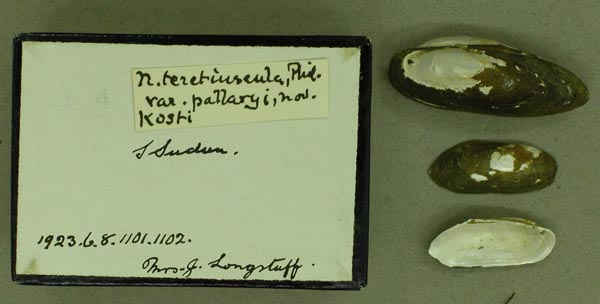 N. teretiuscula, Phil.
var. pallaryi, nov.
Kosti
S Sudan.
1923.6.8.1101.1102.
Mrs. J. Longstaff.